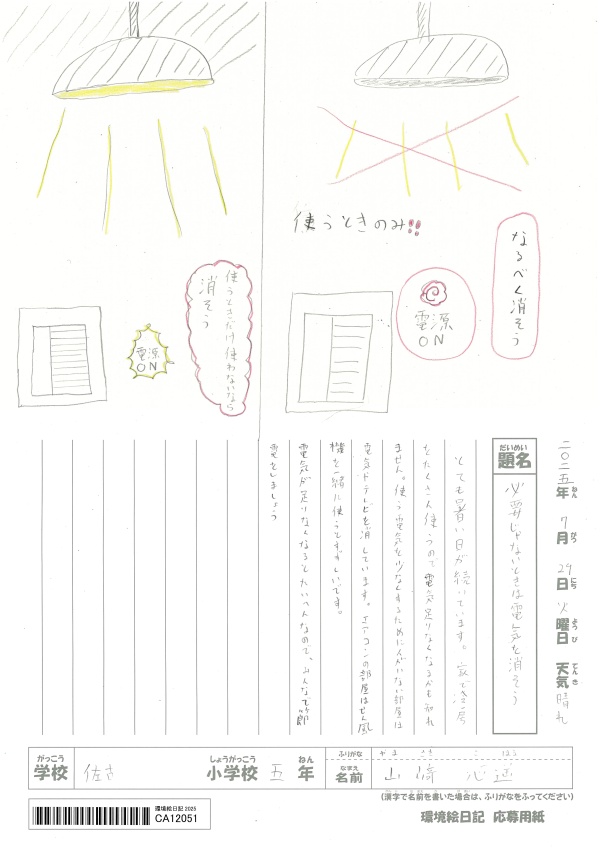 使うときのみ!!
なるべく消そう
電源
ON
使うときだけ使わないなら
消そう
電源
ON
二〇二五年 7月 29日 火曜日 天気 晴れ
ねん がつ にち ようび てんき
だいめい
題名
必要じゃないときは電気を消そう
とても暑い日が続いています。家で冷房
をたくさん使うので電気足りなくなるかも知れ
ません。使う電気を少なくするために人がいない部屋は
電気やテレビを消しています。エアコンの部屋はせん風
機を一緒に使うとすずしいです。
電気が足りなくなるとたいへんなので、みんなで節
電をしましょう
がっこう
学校
佐古
しょうがっこう
小学校
五
ねん
年
ふりがな
やま さき
なまえ
名前
山﨑 心
(漢字で名前を書いた場合は、ふりがなをふってください)
環境絵日記 2025
CA12051
環境絵日記 応募用紙